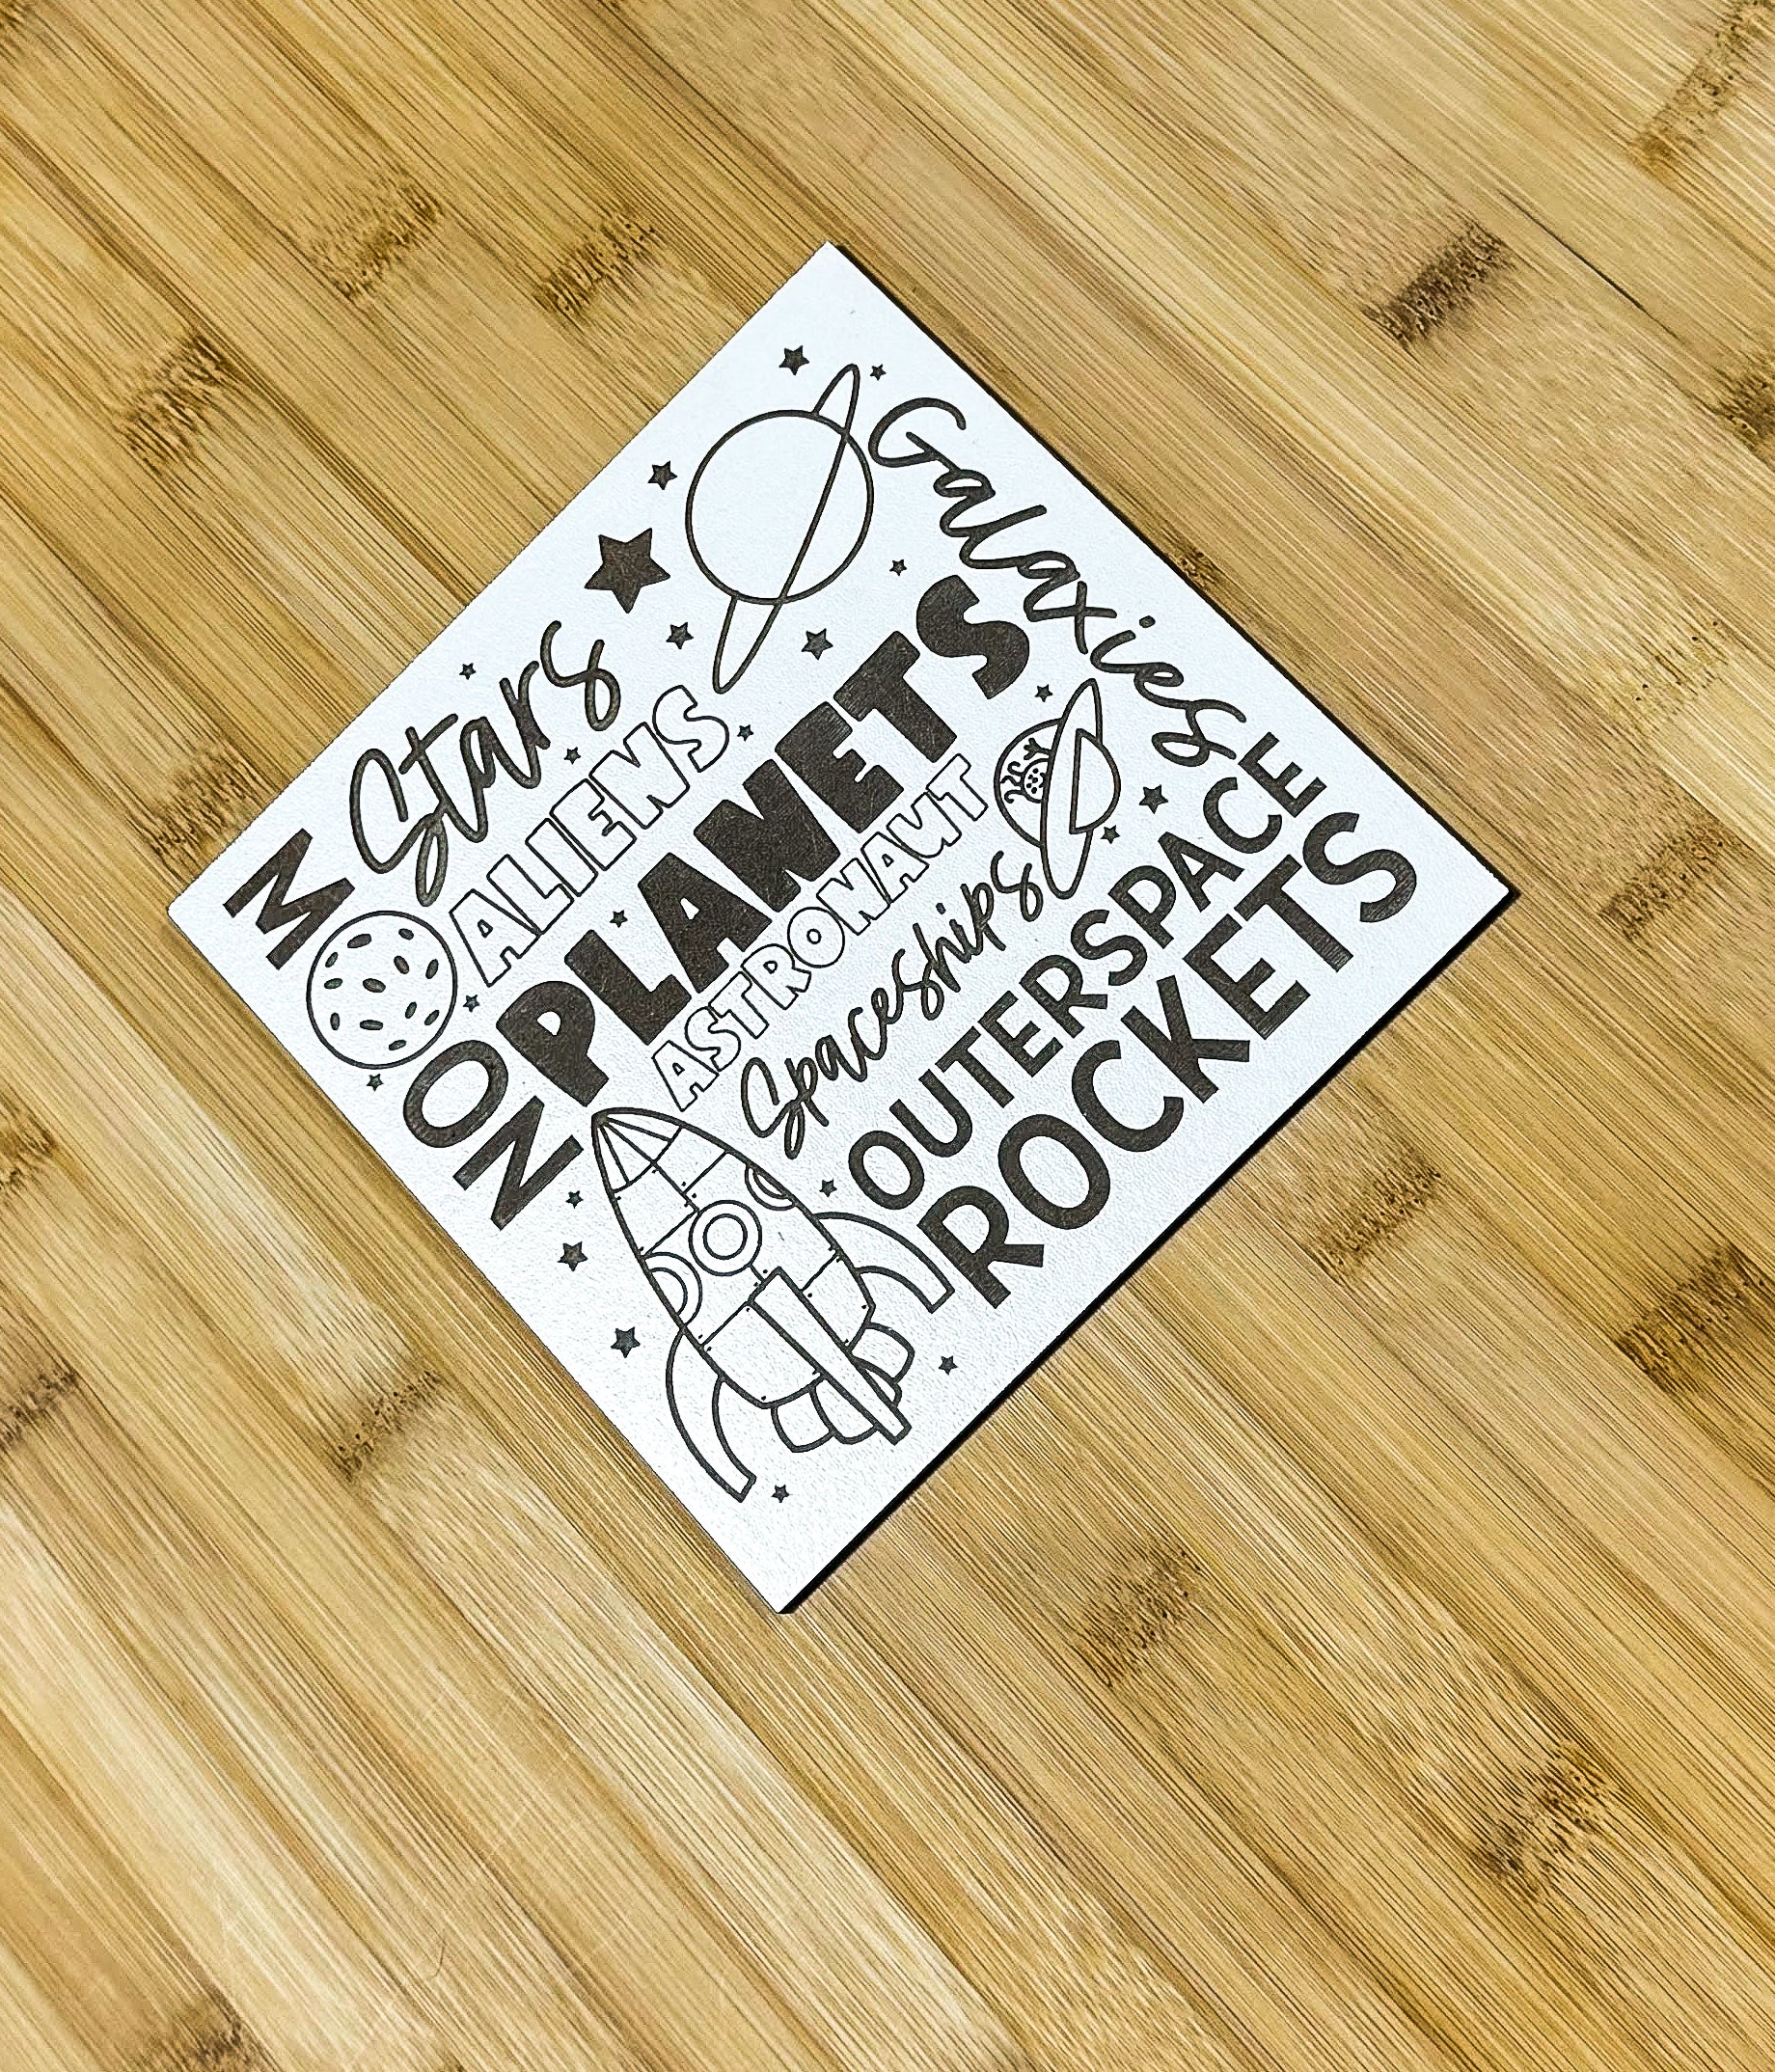 Stars
Galaxies
MOON
ALIENS
PLANETS
ASTRONAUT
Spaceships
OUTERSPACE
ROCKETS